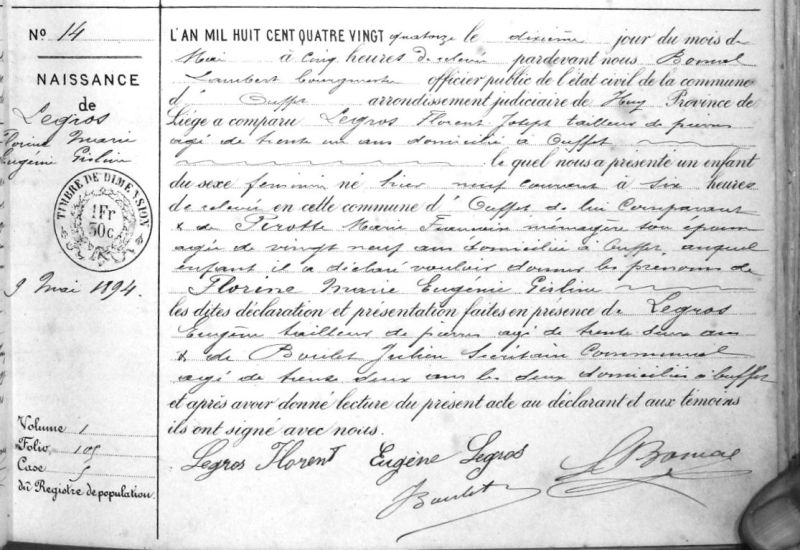 N° 14
NAISSANCE
de
Legros
Florine Marie
Eugénie Gisline
TIMBRE DE DIMENSION
1Fr
30c
9 Mai 1894.
Volume 1
Folio 105
Case 5
du Registre de population.
L'AN MIL HUIT CENT QUATRE VINGT quatorze le dixième jour du mois de
Mai à cinq heures de relevée pardevant nous Bonmal
Lambert bourgmestre officier public de l'état civil de la commune
d' Ouffet arrondissement judiciaire de Huy Province de
Liége a comparu Legros Florent Joseph tailleur de pierres
agé de trente un ans domicilié à Ouffet
le quel nous a présenté un enfant
du sexe feminin né hier neuf courant à six heures
de relevée en cette commune d' Ouffet de lui Comparant
& de Pirotte Marie ménagère son épouse
agée de vingt neuf ans domiciliée à Ouffet, auquel
enfant il a déclaré vouloir donner les prénoms de
Florine Marie Eugénie Gisline
les dites déclaration et présentation faites en présence de Legros
Eugène tailleur de pierres agé de trente deux ans
& de Boulet Julien Secrétaire Communal
agé de trente deux ans les deux domiciliés à Ouffet
et après avoir donné lecture du présent acte au déclarant et aux témoins
ils ont signé avec nous.
Legros Florent Eugène Legros
L Bonmal
J Boulet